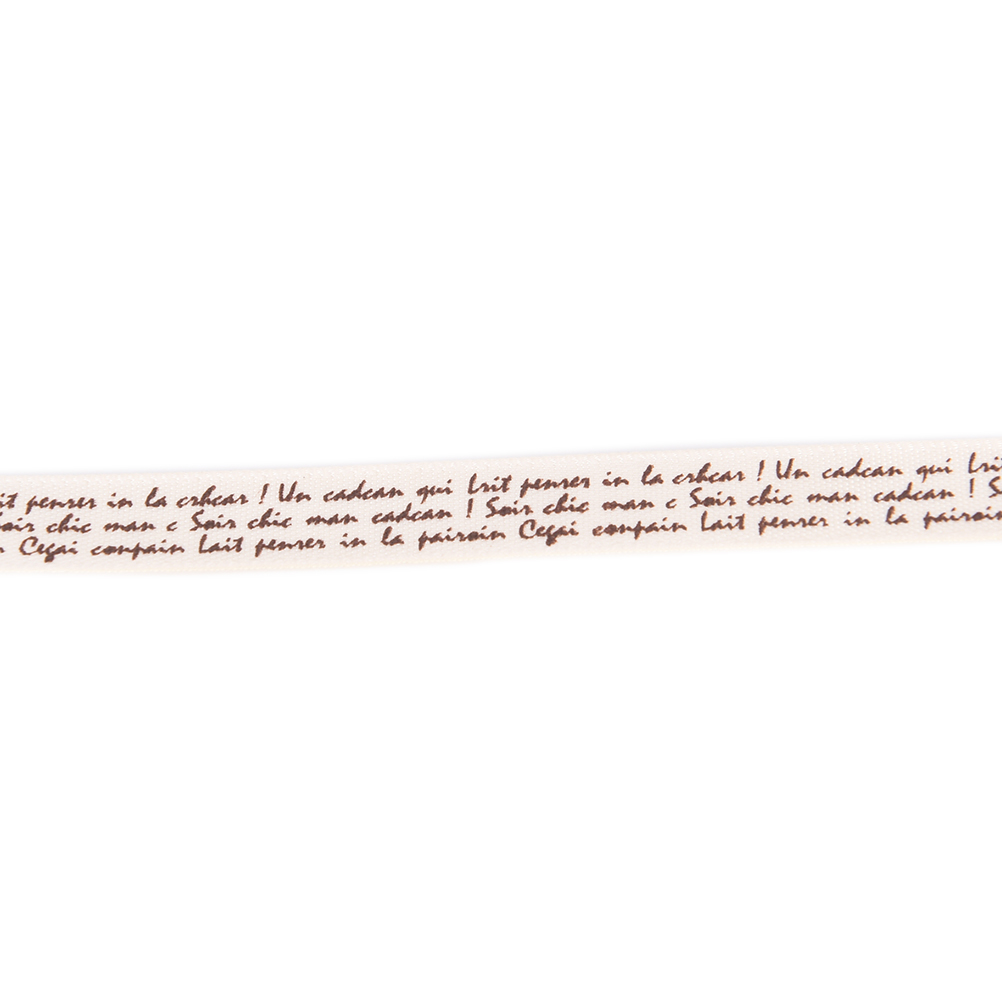 it penser in la crhcar ! Un cadcan qui Lrit penser in la crhcar ! Un cadcan qui Lrit
Soir chic man c Soir chic man cadcan ! Soir chic man c Soir chic man cadcan ! S
n Cegai conpain Lait penser in la pairoin Cegai conpain Lait penser in la pairoin